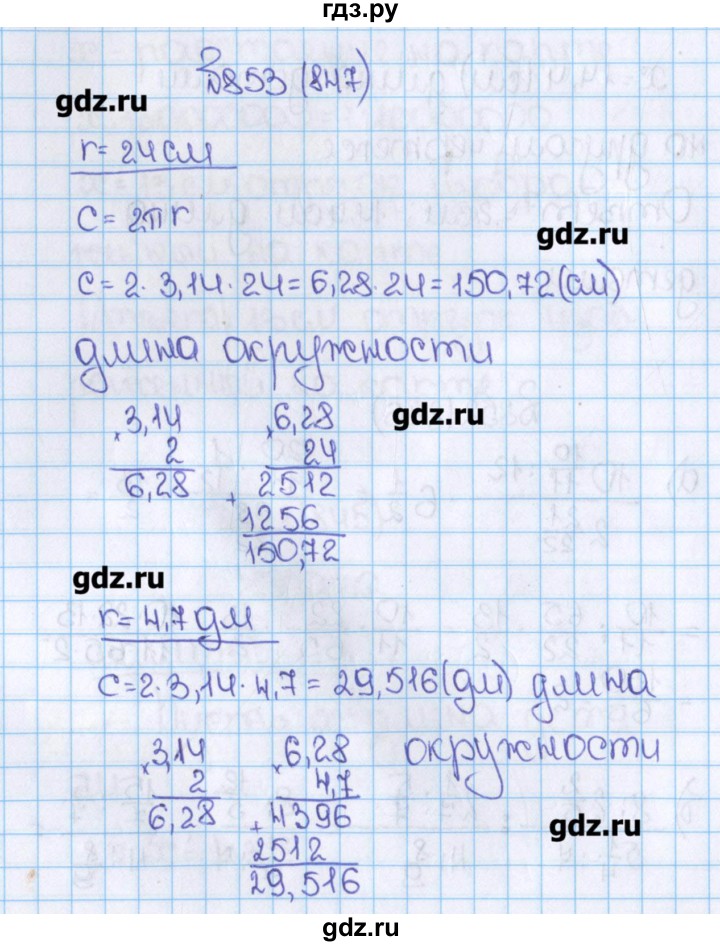 гдз.ру
№853 (847)
gdz.ru
r = 24 см
C = 2πr
gdz.ru
C = 2 · 3,14 · 24 = 6,28 · 24 = 150,72 (см)
длина окружности
gdz.ru
× 3,14
2
6,28
× 6,28
24
+ 2512
1256
150,72
gdz.ru
r = 4,7 дм
C = 2 · 3,14 · 4,7 = 29,516 (дм) длина
окружности
× 3,14
2
6,28
× 6,28
4,7
+ 4396
2512
29,516
gdz.ru
gdz.ru